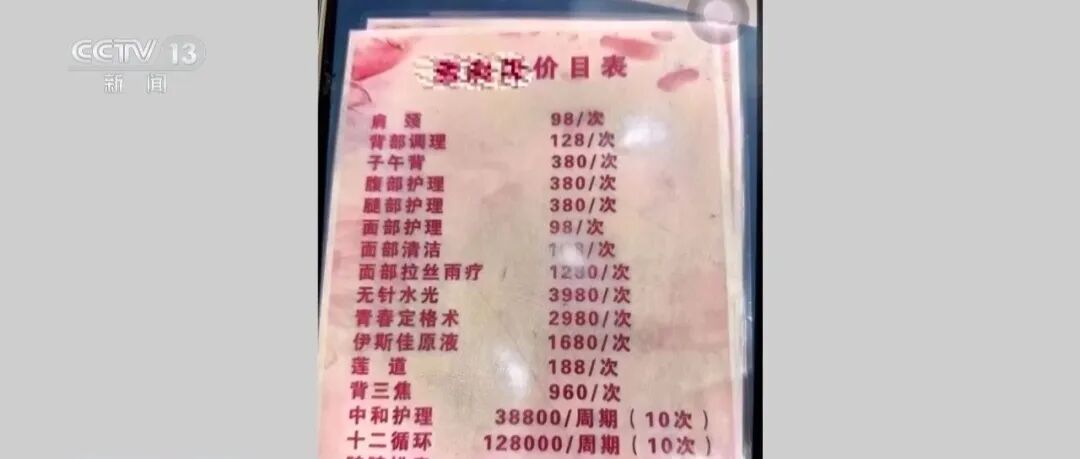 CCTV 13
新闻
价目表
肩 颈 98/次
背部调理 128/次
子午背 380/次
腹部护理 380/次
腿部护理 380/次
面部护理 98/次
面部清洁
面部拉丝雨疗 1280/次
无针水光 3980/次
青春定格术 2980/次
伊斯佳原液 1680/次
莲 道 188/次
背三焦 960/次
中和护理 38800/周期(10次)
十二循环 128000/周期(10次)